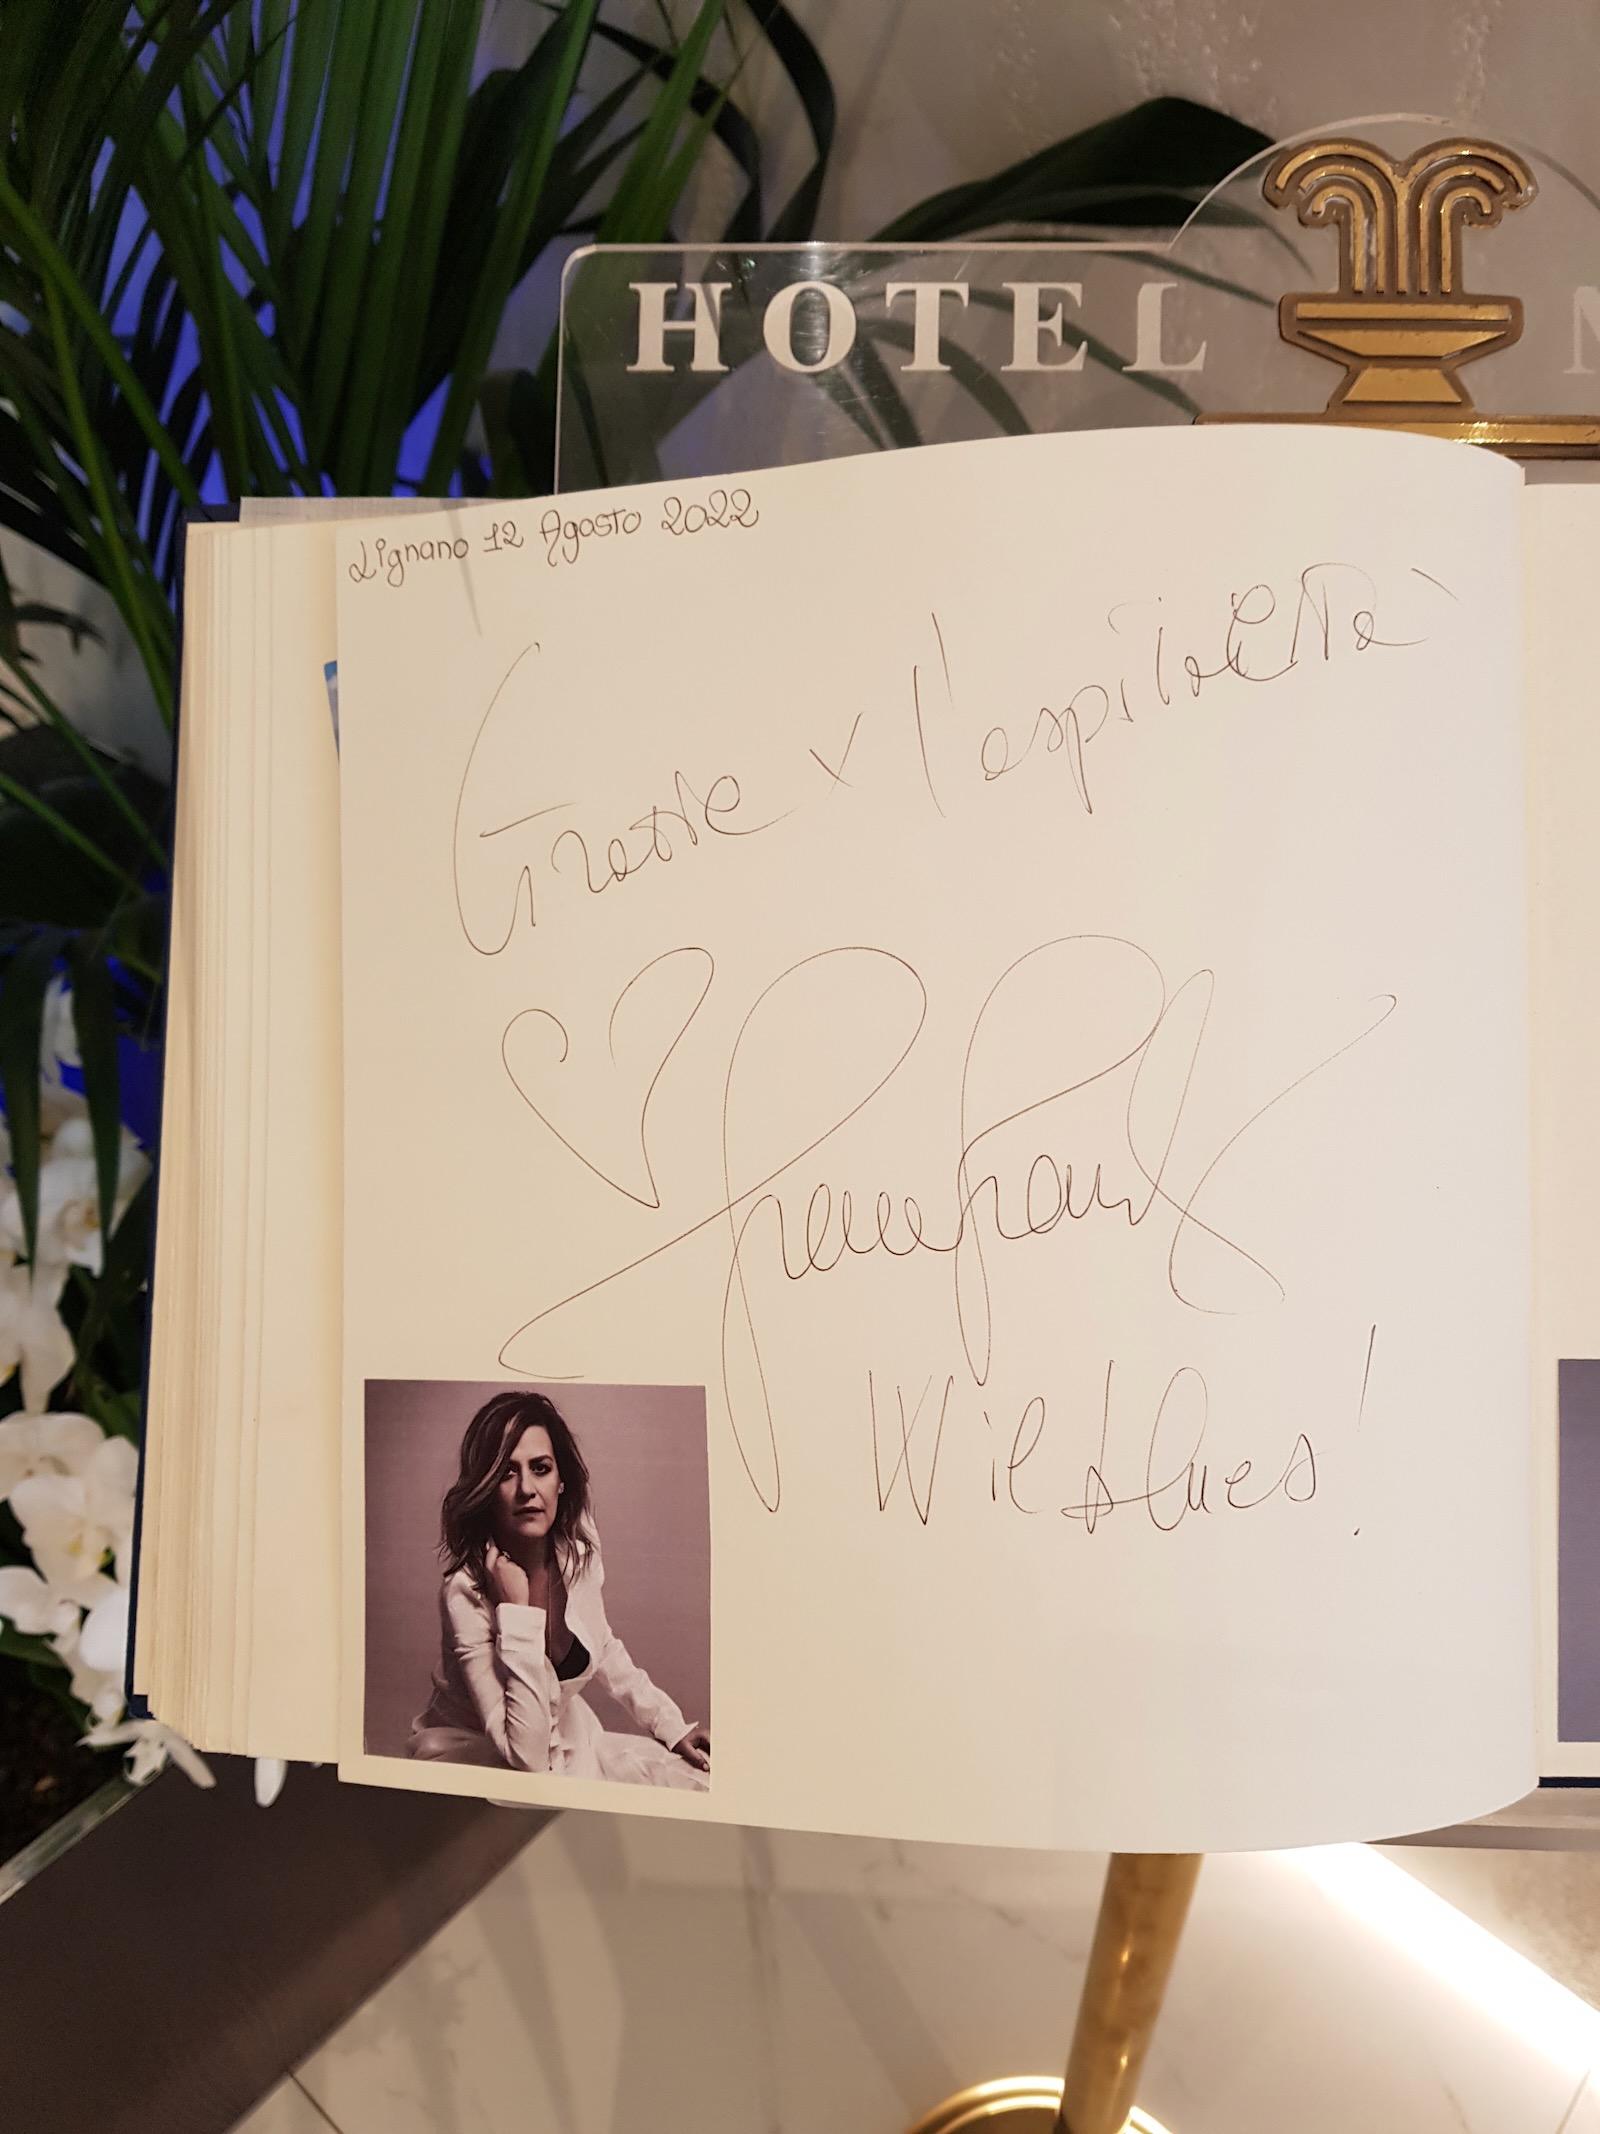 HOTEL
Lignano 12 Agosto 2022
Grazie x l'ospitalità
W il blues!